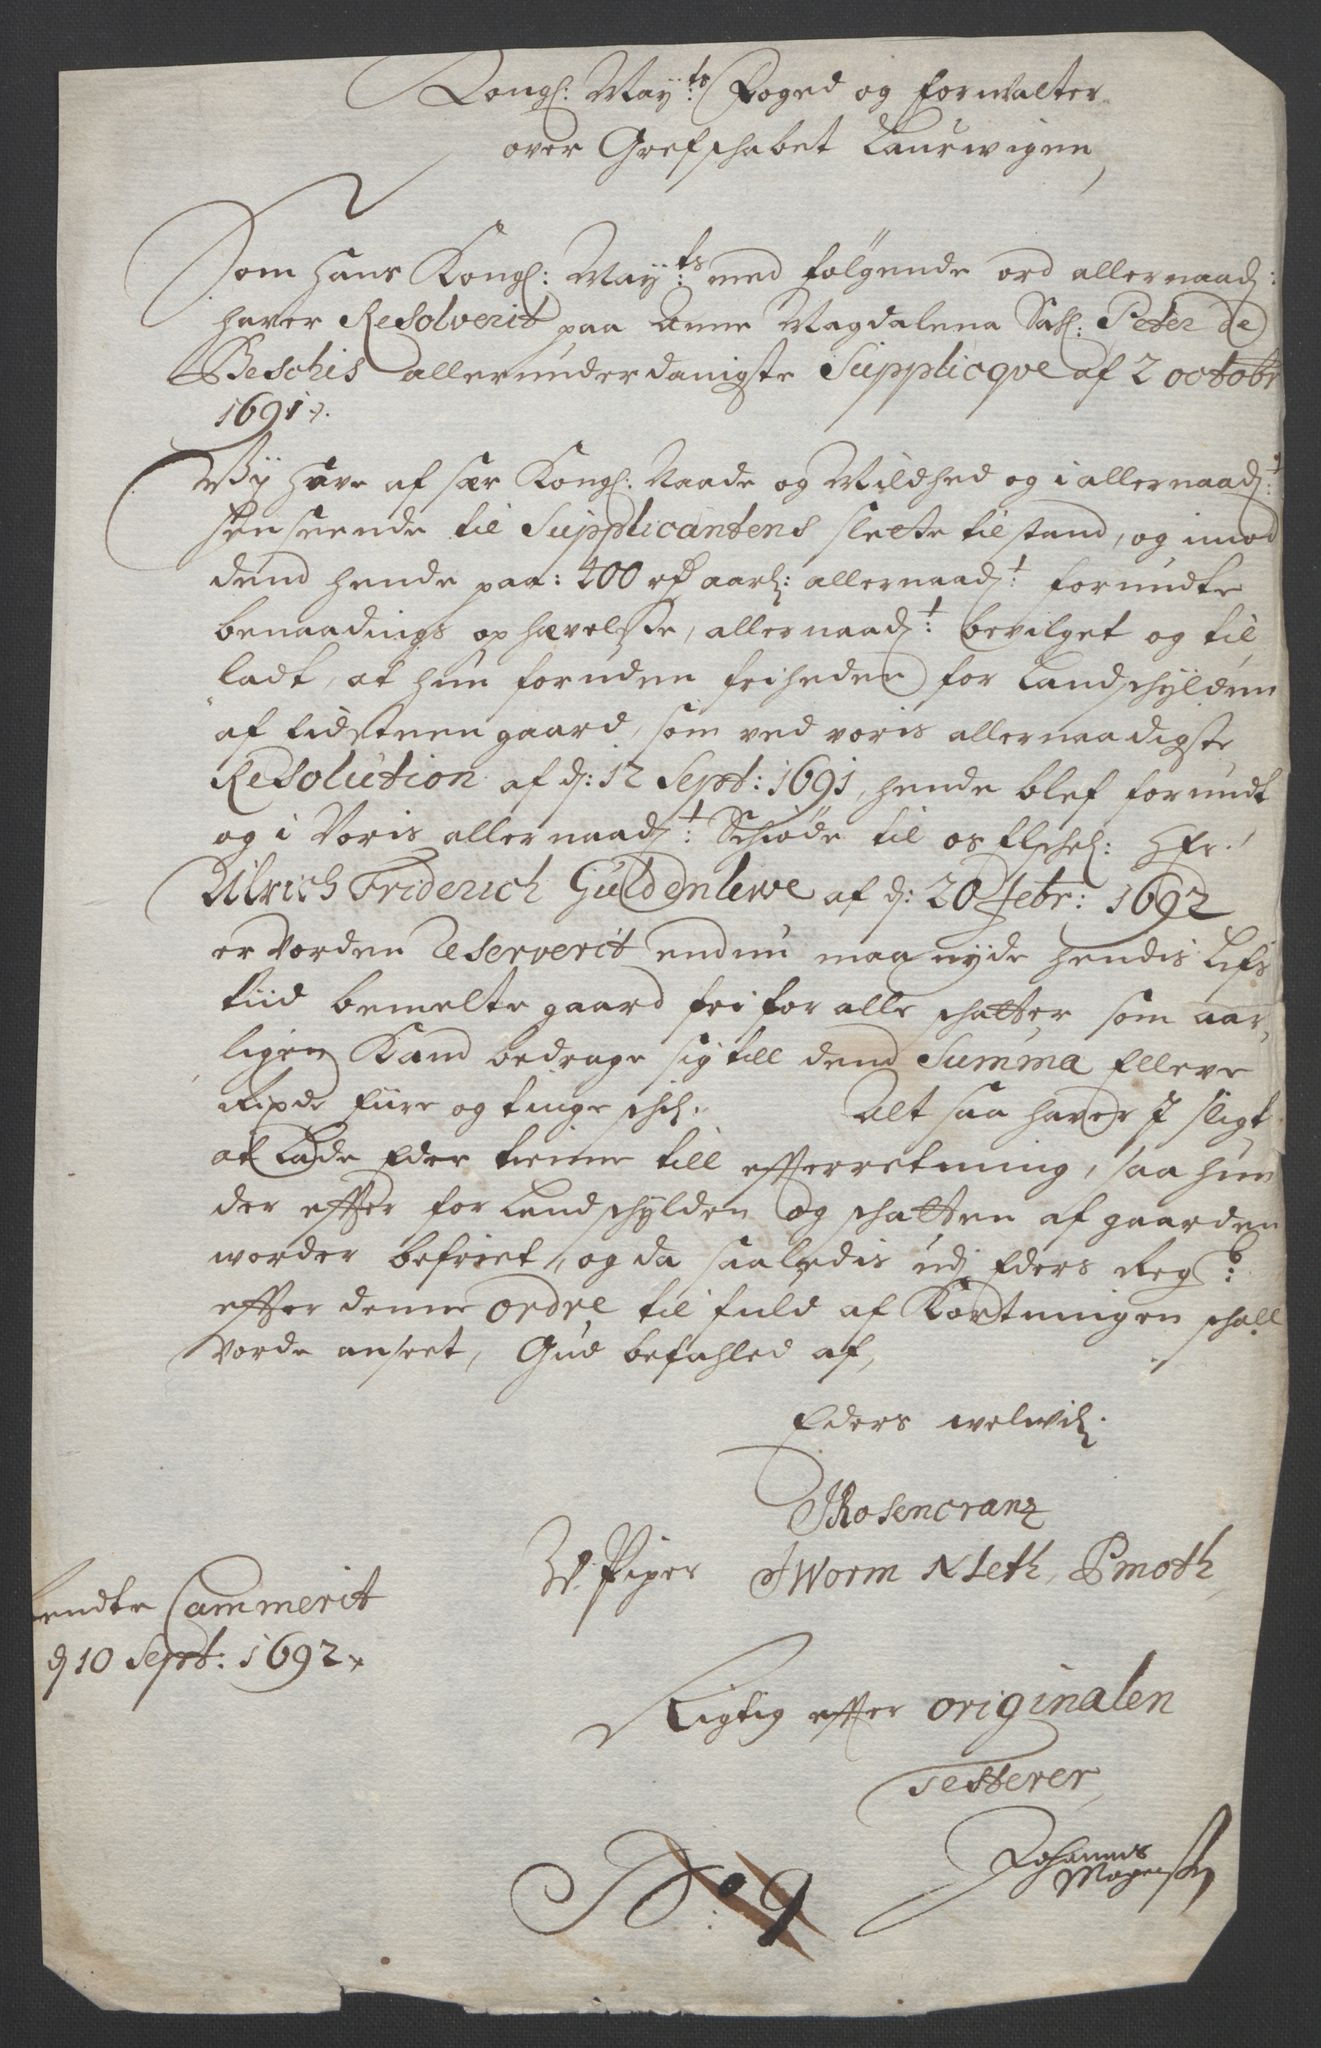 Kongl: May:ts Foged og forvalter
over Grefschabet Laurwigen,
Som Hans Kongl: May:ts med følgende ord allernaad:
haver Resolverit paa Anne Magdalena Sahl: Peter de
Beschis allerunderdanigste Supplicqve af 2 octobr
1691.
Wy have af sær Kongl: Naade og Mildhed og i allernaad:t
henseende til Supplicantens slette tilstand, og imod
dend hende paa: 400 rdr aarl: allernaad:t forundte
benaadings ophævelse, allernaad:t bevilget og til,
ladt, at hun foruden friheden for Landschylden
af gaard, som ved voris allernaadigste
Resolution af d: 12 Sept: 1691, hende blef forundt
og i Voris allernaad:t Schiøde til os Elschel: Hr:
Ulrich Friderich Guldenlewe af d: 20 febr: 1692
er vorden reserverit endnu maa nyde hendis Lifs
tiid bemelte gaard fri for alle schatter som aar,
ligen Kand bedrage sig till dend Summa Elleve
Rixdr fiire og tiuge schl. Alt saa haver I sligt
at Lade Eder tienne till efterretning, saa hun
der effter for Landschylden og schatten af gaarden
worder befriet, og da saaledis udj Eders Reg:
effter denne ordre til fuld afkortningen schall
vorde anseet, Gud befahled af,
Eders welwil:
JRosencranz
W: Piper JWorm NLeth, Pmoth,
Rendte Cammerit
d 10 Sept: 1692
Rigtig effter originalen
Testerer,
Johannis
Mogensen
No: 9